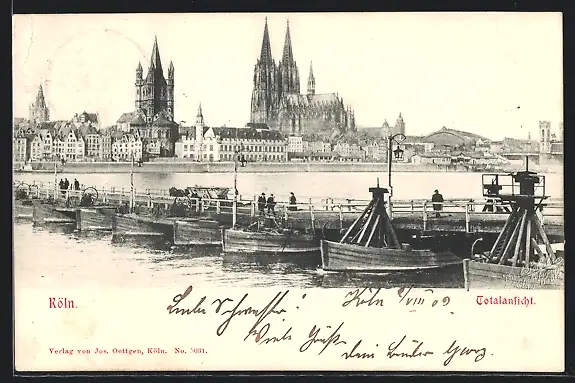 Köln.
Totalansicht.
Liebe Schwester! Köln 9/VIII 02
Viele Grüße
Dein Bruder Georg.
Verlag von Jos. Oettgen, Köln. No. 5031.